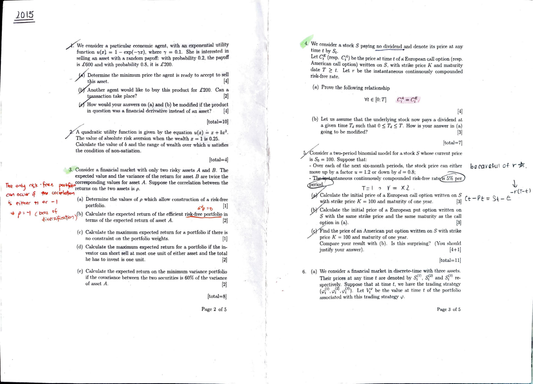 2015
1. We consider a particular economic agent, with an exponential utility
function u(x) = 1 − exp(−γx), where γ = 0.1. She is interested in
selling an asset with a random payoff: with probability 0.2, the payoff
is £600 and with probability 0.8, it is £200.
(a) Determine the minimum price the agent is ready to accept to sell
this asset. [4]
(b) Another agent would like to buy this product for £200. Can a
transaction take place? [2]
(c) How would your answers on (a) and (b) be modified if the product
in question was a financial derivative instead of an asset? [4]
[total=10]
2. A quadratic utility function is given by the equation u(x) = x + bx².
The value of absolute risk aversion when the wealth x = 1 is 0.25.
Calculate the value of b and the range of wealth over which u satisfies
the condition of non-satiation.
[total=4]
3. Consider a financial market with only two risky assets A and B. The
expected value and the variance of the return for asset B are twice the
corresponding values for asset A. Suppose the correlation between the
returns on the two assets is ρ.
(a) Determine the values of ρ which allow construction of a risk-free
portfolio. [1]
(b) Calculate the expected return of the efficient risk-free portfolio in
terms of the expected return of asset A. [2]
(c) Calculate the maximum expected return for a portfolio if there is
no constraint on the portfolio weights. [1]
(d) Calculate the maximum expected return for a portfolio if the in-
vestor can short sell at most one unit of either asset and the total
he has to invest is one unit. [2]
(e) Calculate the expected return on the minimum variance portfolio
if the covariance between the two securities is 60% of the variance
of asset A. [2]
[total=8]
Page 2 of 5
The only risk-free portfolio
can occur if the correlation
is either 1 or −1
4. We consider a stock S paying no dividend and denote its price at any
time t by Sₜ.
American call option) written on S, with strike price K and maturity
date T ≥ t. Let r be the instantaneous continuously compounded
risk-free rate.
(a) Prove the following relationship
[4]
(b) Let us assume that the underlying stock now pays a dividend at
going to be modified? [3]
[total=7]
5. Consider a two-period binomial model for a stock S whose current price
is S₀ = 100. Suppose that:
- Over each of the next six-month periods, the stock price can either
move up by a factor u = 1.2 or down by d = 0.8;
- The instantaneous continuously compounded risk-free rate is 5% per
period.
(a) Calculate the initial price of a European call option written on S
with strike price K = 100 and maturity of one year. [3]
(b) Calculate the initial price of a European put option written on
S with the same strike price and the same maturity as the call
option in (a). [3]
(c) Find the price of an American put option written on S with strike
price K = 100 and maturity of one year.
Compare your result with (b). Is this surprising? (You should
justify your answer). [4+1]
[total=11]
6. (a) We consider a financial market in discrete-time with three assets.
spectively. Suppose that at time t, we have the trading strategy
associated with this trading strategy φ.
Page 3 of 5
be careful of r